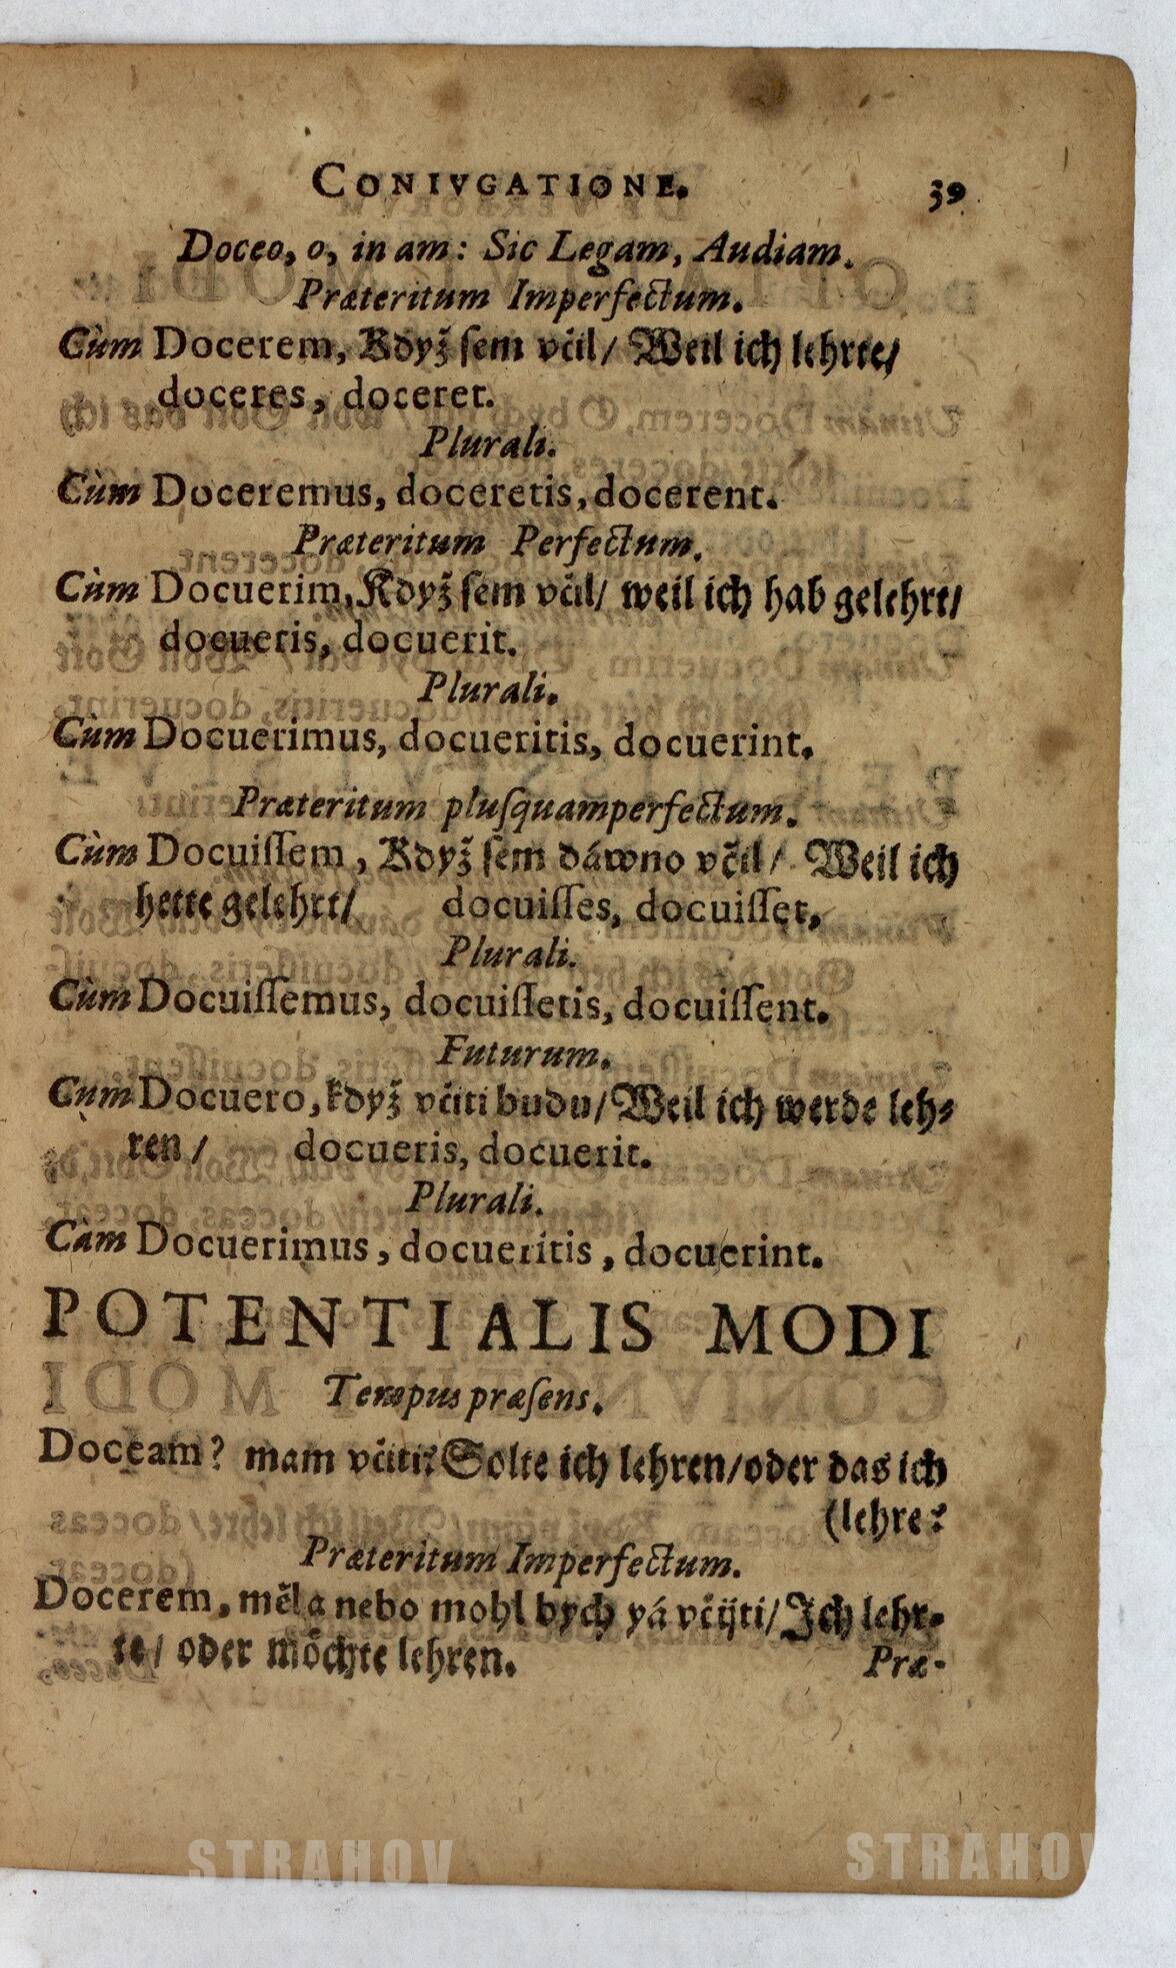 CONIVGATIONE. 39
Doceo, o, in am: Sic Legam, Audiam.
Præteritum Imperfectum.
Cùm Docerem, Když ſem včil/ Weil ich lehrte/
doceres, doceret.
Plurali.
Cùm Doceremus, doceretis, docerent.
Præteritum Perfectum.
Cùm Docuerim, Když ſem včil/ weil ich hab gelehrt/
docueris, docuerit.
Plurali.
Cùm Docuerimus, docueritis, docuerint.
Præteritum pluſquamperfectum.
Cùm Docuiſſem, Když ſem dáwno včil/ Weil ich
hette gelehrt/ docuiſſes, docuiſſet,
Plurali.
Cùm Docuiſſemus, docuiſſetis, docuiſſent.
Futurum.
Cùm Docuero, když včiti budu/ Weil ich werde leh⸗
ren/ docueris, docuerit.
Plurali.
Cùm Docuerimus, docueritis, docuerint.
POTENTIALIS MODI
Tempus præſens.
Doceam? mam včiti? Solte ich lehren/oder das ich
(lehre?
Præteritum Imperfectum.
Docerem, měl a nebo mohl bych yá včijti/ Ich lehr⸗
te/ oder möchte lehren. Præ-
STRAHOV STRAHOV